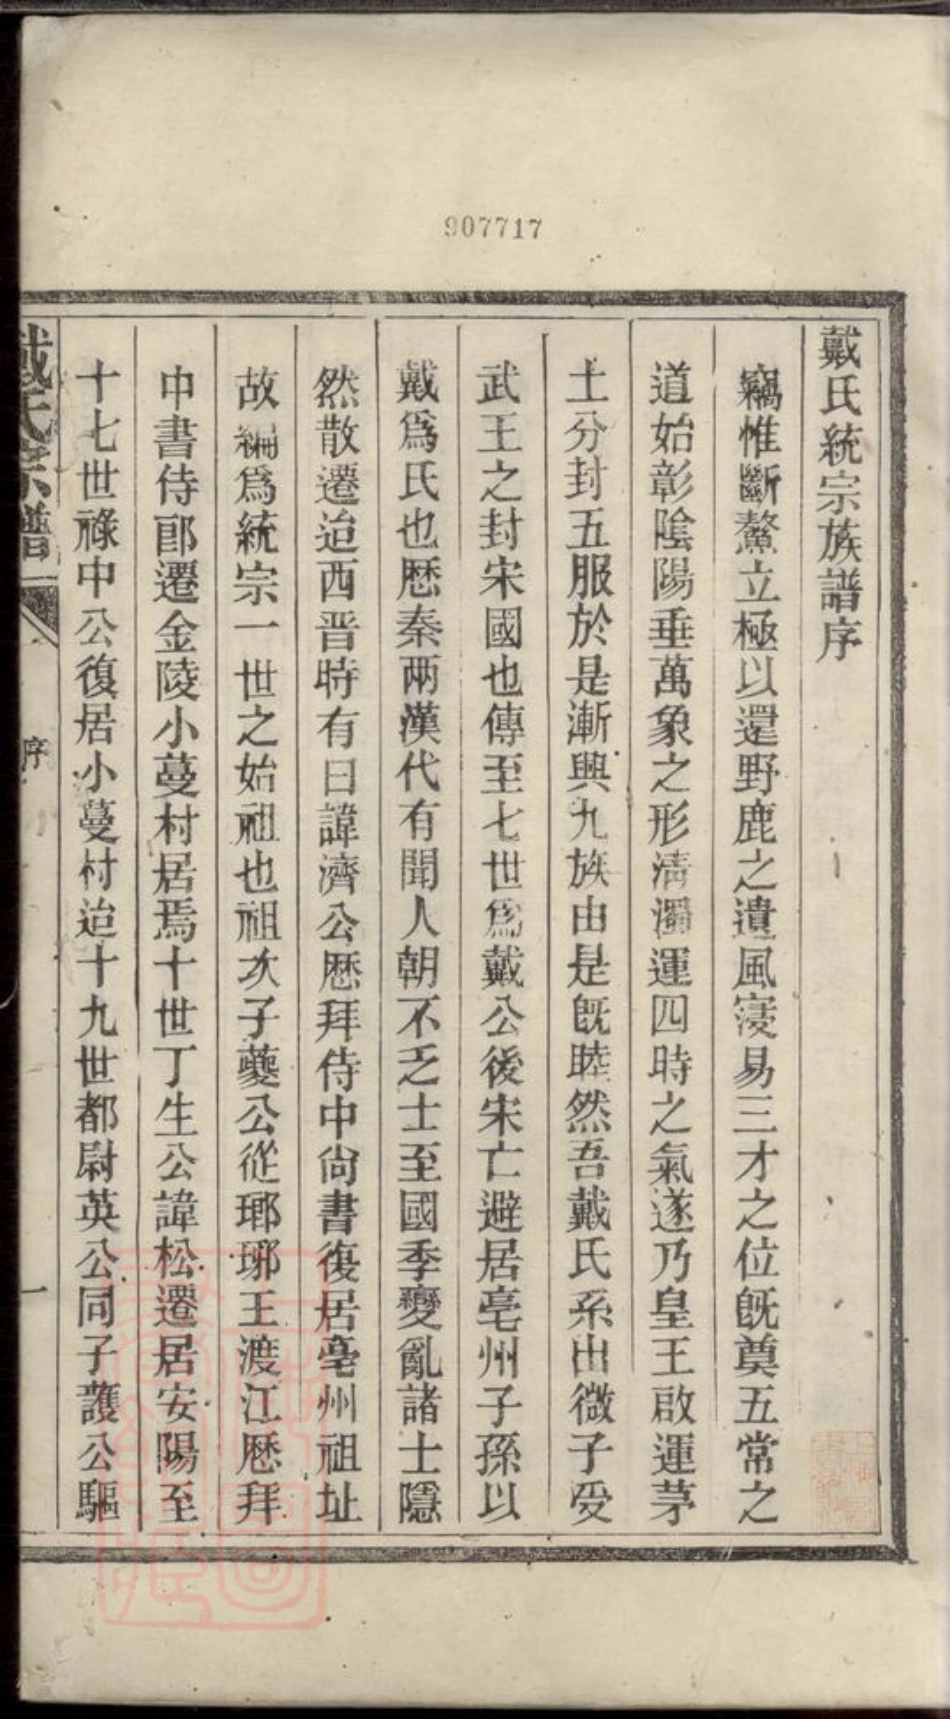 907717
戴氏統宗族譜序
竊惟斷鰲立極以還野鹿之遺風寖易三才之位旣奠五常之
道始彰陰陽垂萬象之形淸濁運四時之氣遂乃皇王啟運茅
土分封五服於是漸興九族由是旣睦然吾戴氏系出微子受
武王之封宋國也傳至七世爲戴公後宋亡避居亳州子孫以
戴爲氏也歷秦兩漢代有聞人朝不乏士至國季變亂諸士隱
然散遷迨西晋時有曰諱濟公歷拜侍中尙書復居亳州祖址
故編爲統宗一世之始祖也祖次子夔公從瑯琊王渡江歷拜
中書侍郎遷金陵小蔓村居焉十世丁生公諱松遷居安陽至
十七世祿中公復居小蔓村迨十九世都尉英公同子護公驅
戴氏宗譜
序
一